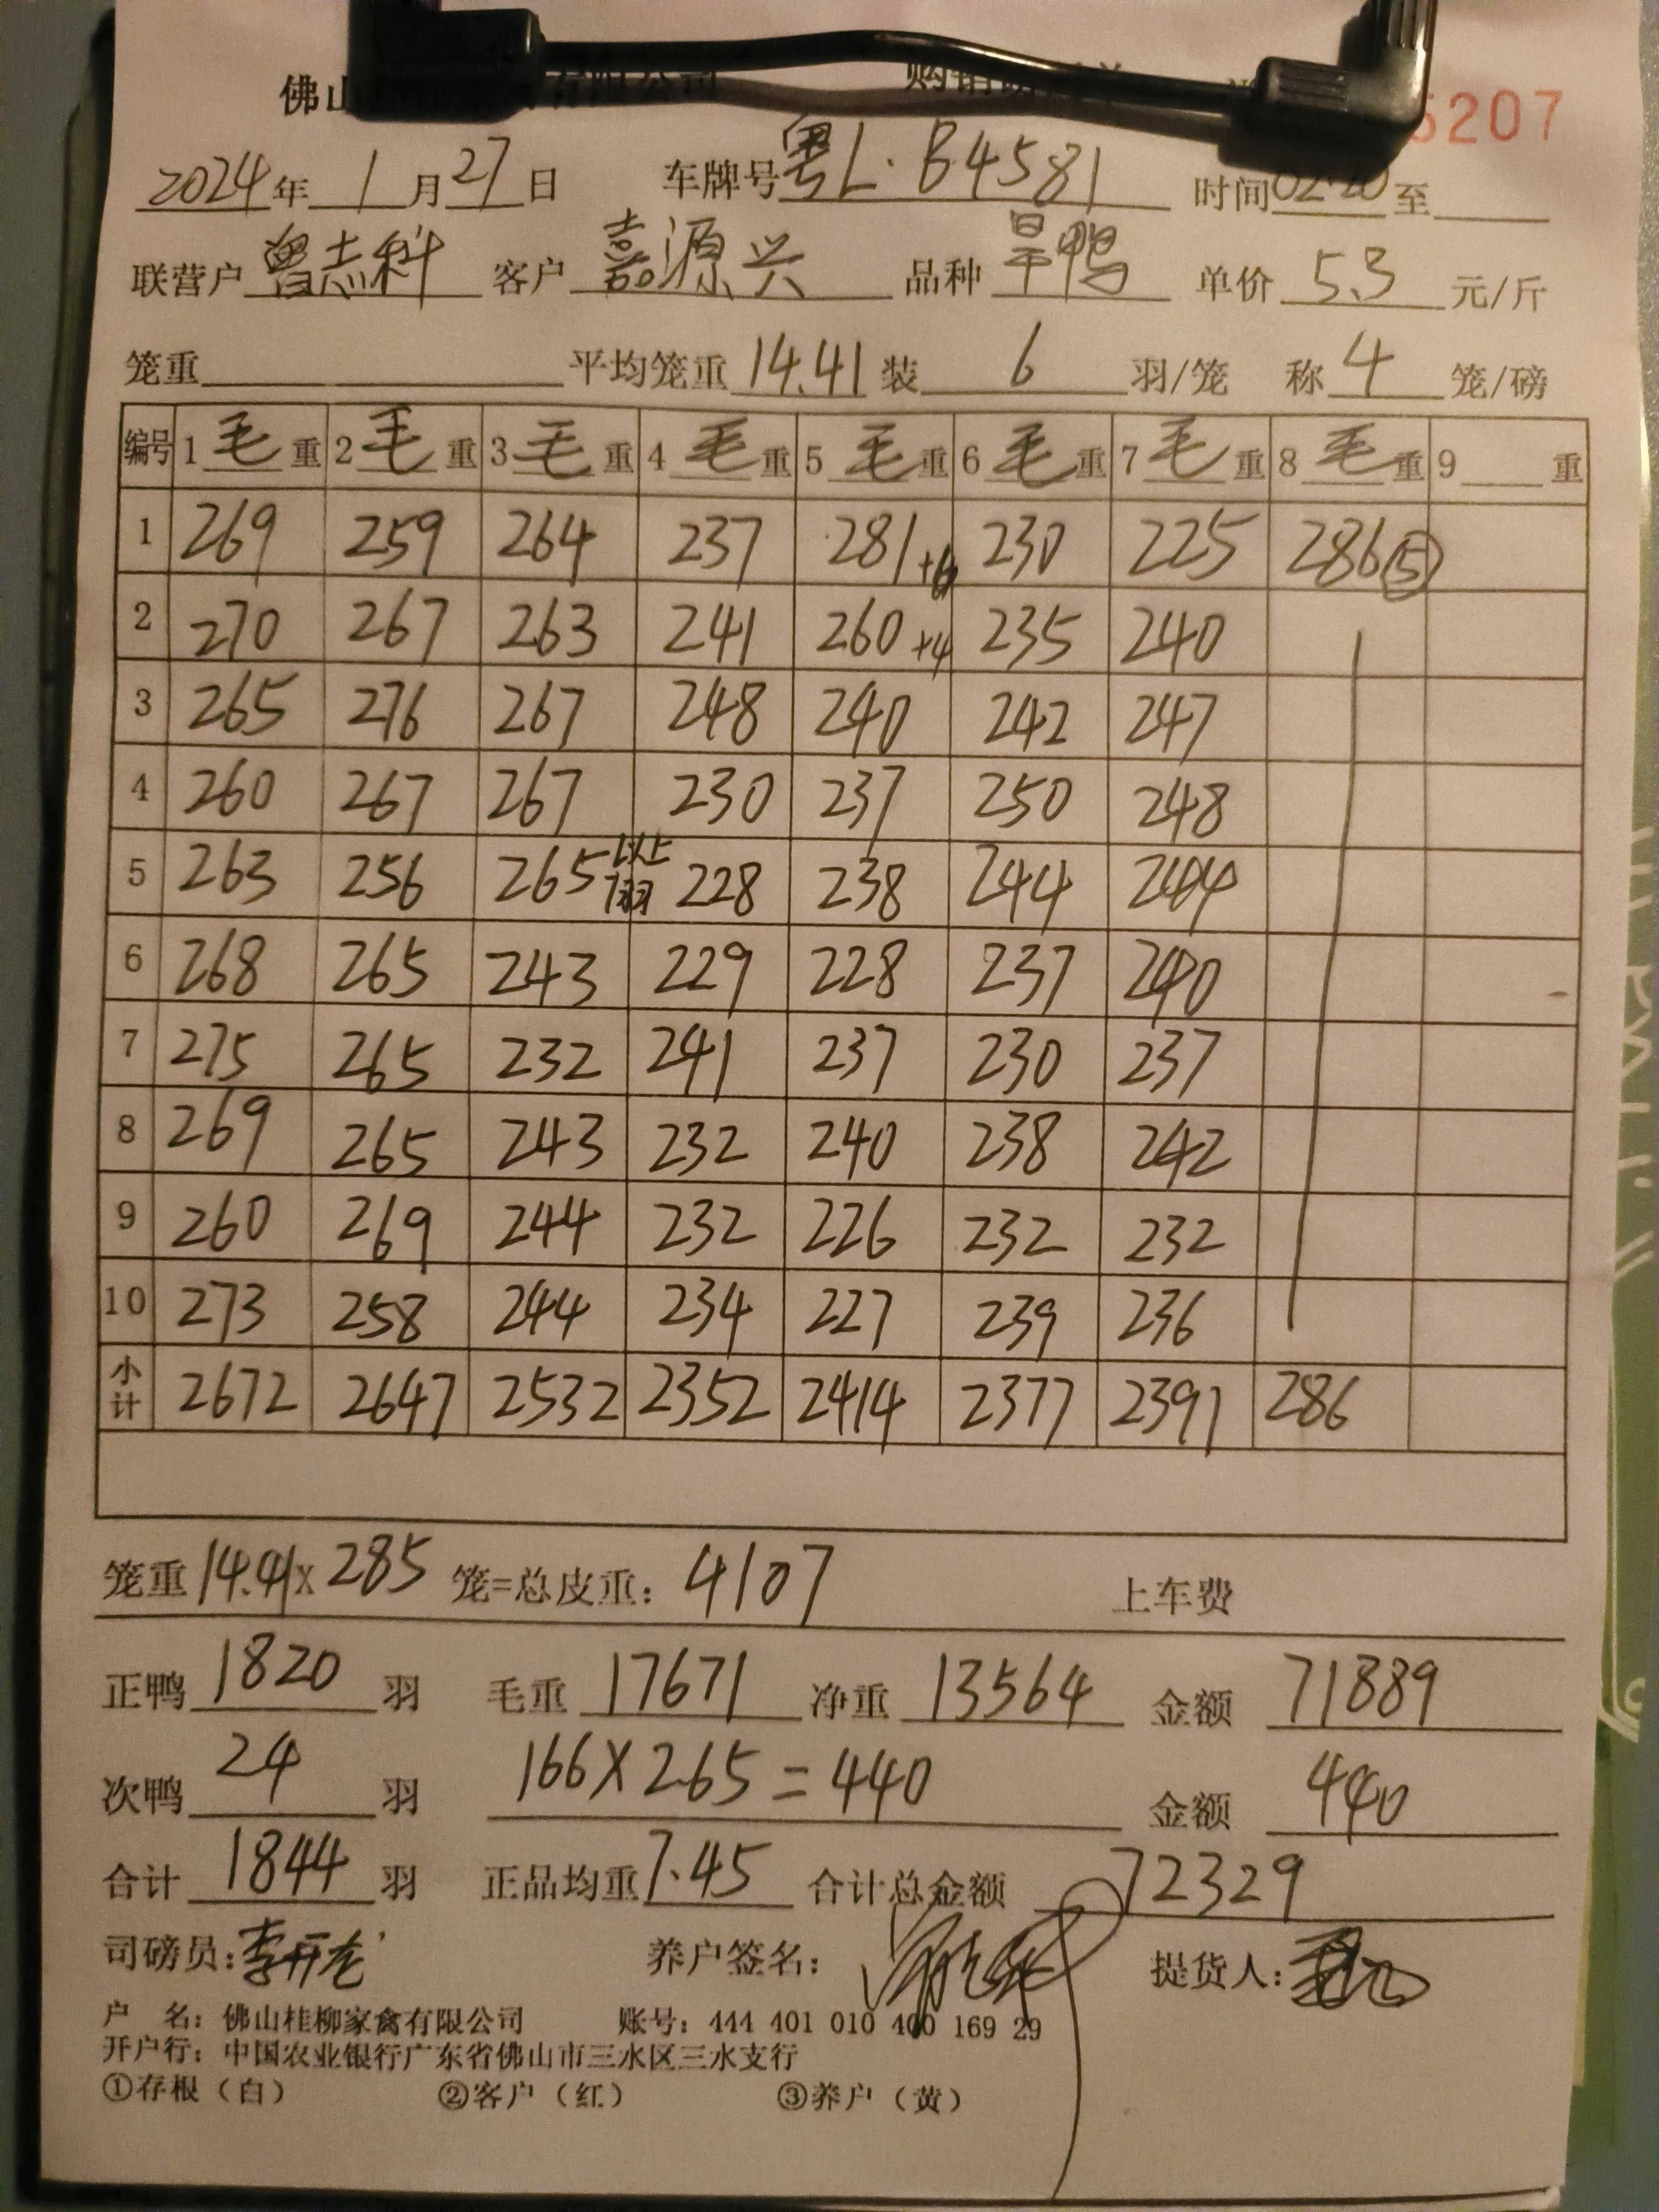 佛山 有限公司 5207
2024年1月27日 车牌号粤L·B4581 时间02:20至
联营户曾志科 客户嘉源兴 品种旱鸭 单价5.3元/斤
笼重 平均笼重14.41装6羽/笼 称4笼/磅
编号 1毛重 2毛重 3毛重 4毛重 5毛重 6毛重 7毛重 8毛重 9重
1 269 259 264 237 281+6 230 225 286⑤
2 270 267 263 241 260+4 235 240
3 265 276 267 248 240 242 247
4 260 267 267 230 237 250 248
5 263 256 265 以上7羽 228 238 244 244
6 268 265 243 229 228 237 240
7 275 265 232 241 237 230 237
8 269 265 243 232 240 238 242
9 260 269 244 232 226 232 232
10 273 258 244 234 227 239 236
小计 2672 2647 2532 2352 2414 2377 2391 286
笼重14.41X285笼=总皮重：4107 上车费
正鸭1820羽 毛重17671 净重13564 金额71889
次鸭24羽 166X2.65=440 金额440
合计1844羽 正品均重7.45 合计总金额72329
司磅员：李开龙 养户签名： 提货人：
户 名：佛山桂柳家禽有限公司 账号：444 401 010 400 169 29
开户行：中国农业银行广东省佛山市三水区三水支行
①存根（白） ②客户（红） ③养户（黄）